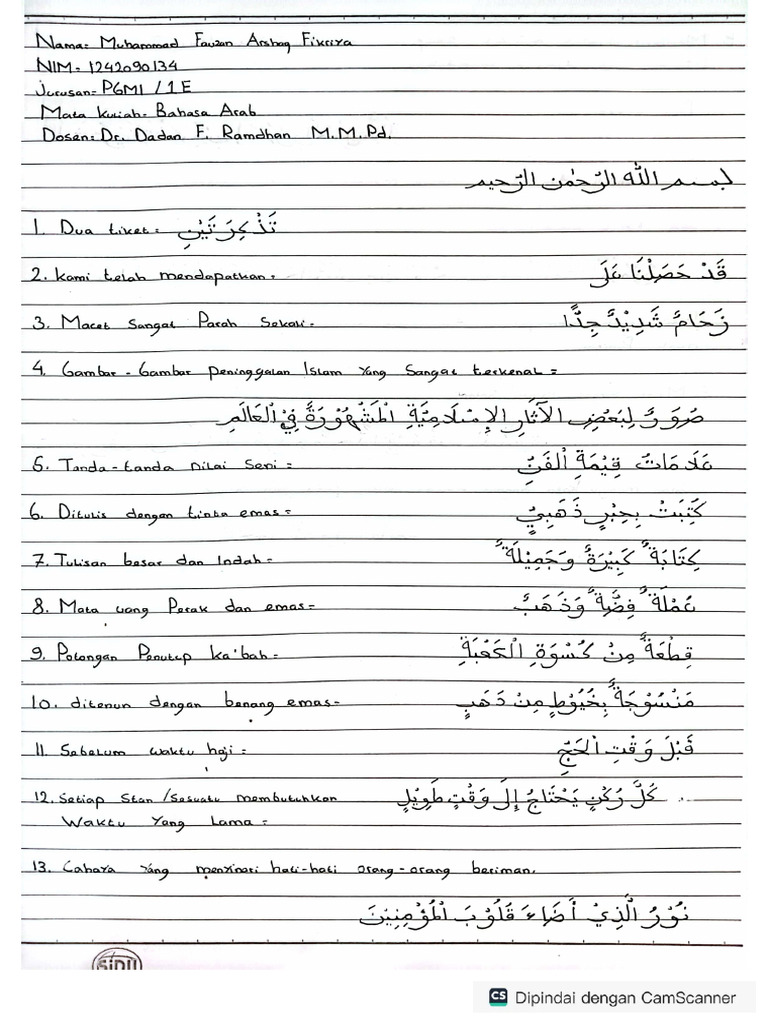 Nama: Muhammad Fauzan Arshaq Fikriya
NIM: 1242090134
Jurusan: PGMI / 1 E
Mata Kuliah: Bahasa Arab
Dosen: Dr. Dadan F. Ramdhan M.M.Pd.
بسم الله الرّحمن الرّحيم
1. Dua tiket = تَذْكِرَتَيْنِ
2. Kami telah mendapatkan = قَدْ حَصَلْنَا عَلَى
3. Macet Sangat Parah Sekali = زَحَامٌ شَدِيْدٌ جِدًّا
4. Gambar - Gambar peninggalan Islam Yang Sangat terkenal =
صُوَرٌ لِبَعْضِ الْآثَارِ الْإِسْلَامِيَّةِ الْمَشْهُوْرَةِ فِي الْعَالَمِ
5. Tanda - tanda Nilai Seni = عَلَامَاتُ قِيْمَةِ الْفَنِّ
6. Ditulis dengan tinta emas = كُتِبَتْ بِحِبْرٍ ذَهَبِيٍّ
7. Tulisan besar dan Indah = كِتَابَةٌ كَبِيْرَةٌ وَجَمِيْلَةٌ
8. Mata uang Perak dan emas = عُمْلَةٌ فِضَّةٌ وَذَهَبٌ
9. Potongan Penutup Ka'bah = قِطْعَةٌ مِنْ كُسْوَةِ الْكَعْبَةِ
10. ditenun dengan benang emas = مَنْسُوْجَةٌ بِخُيُوْطٍ مِنْ ذَهَبٍ
11. Sebelum waktu haji = قَبْلَ وَقْتِ الْحَجِّ
12. Setiap Stan / Sesuatu membutuhkan كُلُّ رُكْنٍ يَحْتَاجُ إِلَى وَقْتٍ طَوِيْلٍ
Waktu Yang Lama =
13. Cahaya Yang menyinari hati-hati orang-orang beriman.
نُوْرُ الَّذِيْ أَضَاءَ قُلُوْبَ الْمُؤْمِنِيْنَ
SiDU
CS Dipindai dengan CamScanner